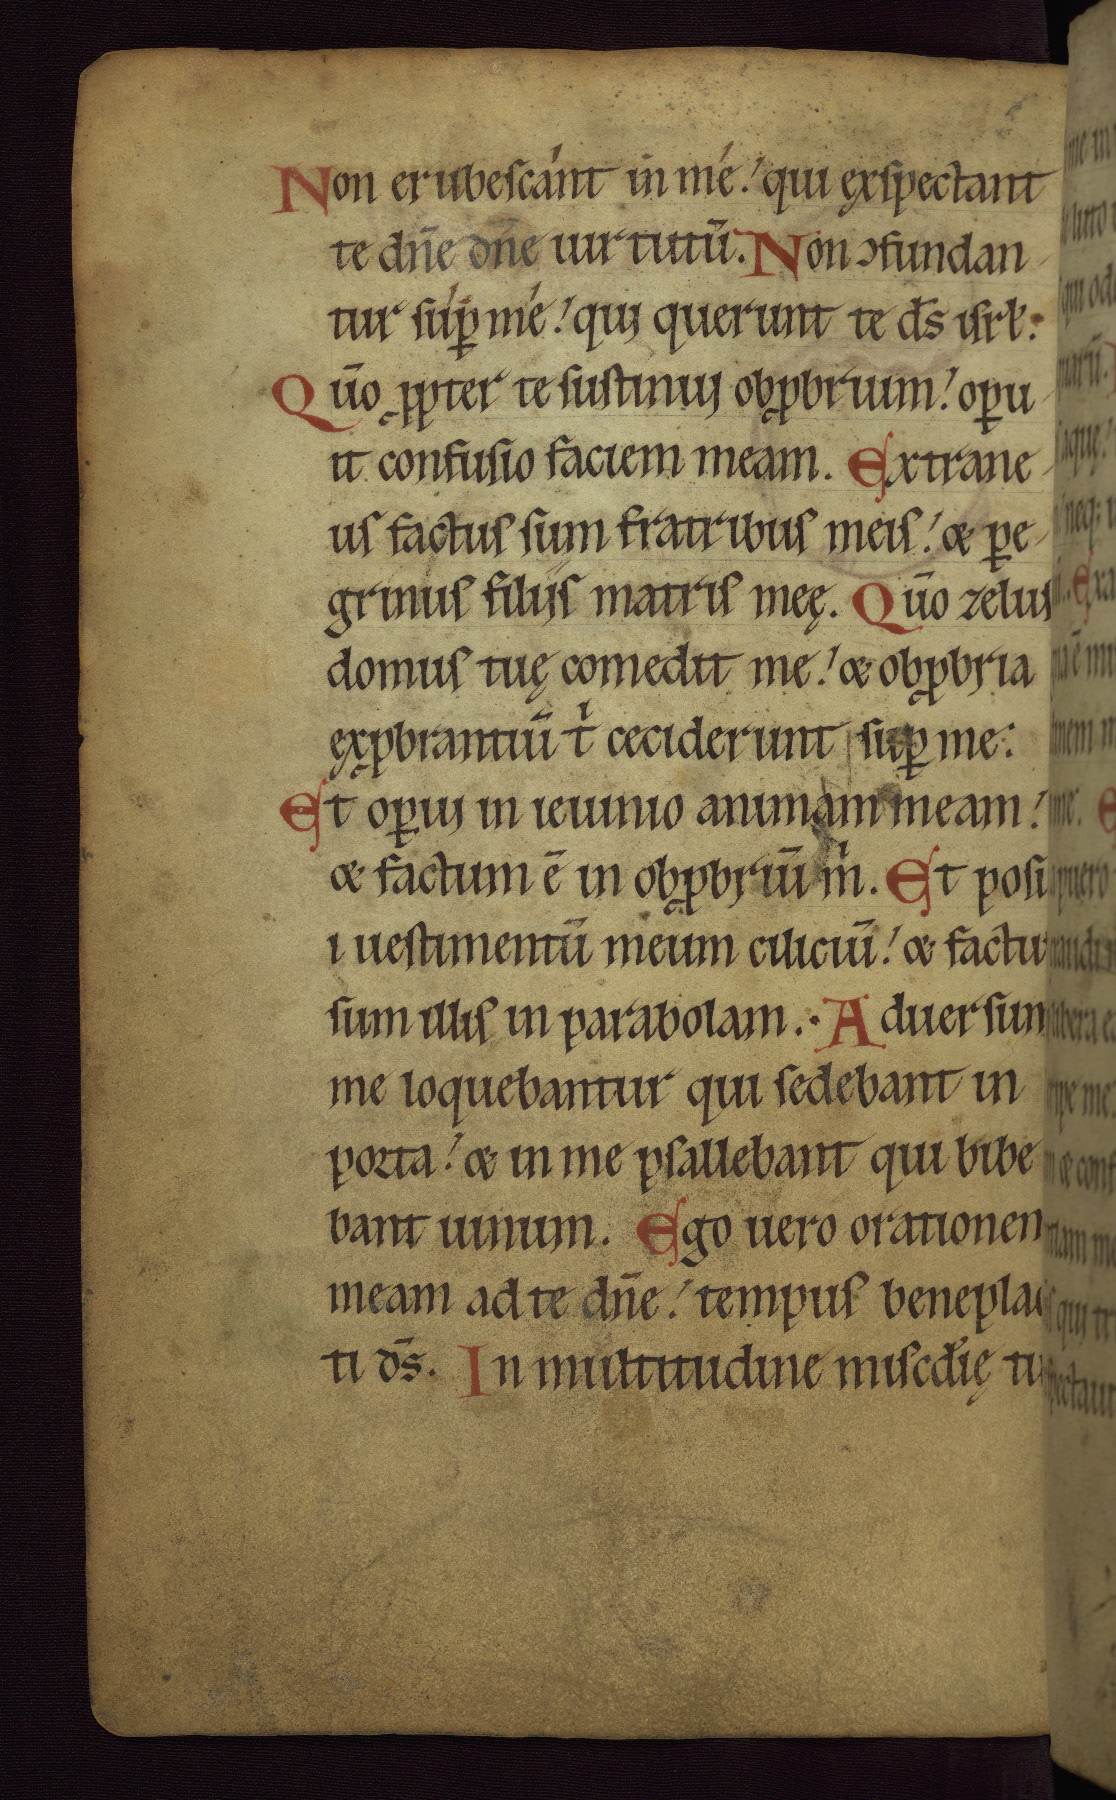 Non erubescánt in mé! qui exspectant
te dn̄e dn̄e uirtutū. Non ɔfundan
tur sup̱ mé! qui querunt te d̄s isrl̄.
Qūo ꝓpter te sustinui obꝓbrium! oꝑu
it confusio faciem meam. Extrane
us factus sum fratribus meis! & ꝑe
grinus filijs matris meę. Qūo zelus
domus tuę comedit me! & obꝓbria
exꝓbrantiū t̄ ceciderunt suꝑ me:
Et oꝑui in ieiunio animam meam!
& factum ē in obꝓbriū m̄. Et posu
i uestimentū meum ciliciū! & factu
sum illis in parabolam. Aduersum
me loquebantur qui sedebant in
porta! & in me psallebant qui bibe
bant uinum. Ego uero orationem
meam ad te dn̄e! tempus beneplaci
ti d̄s. In multitudine miscdīę tu